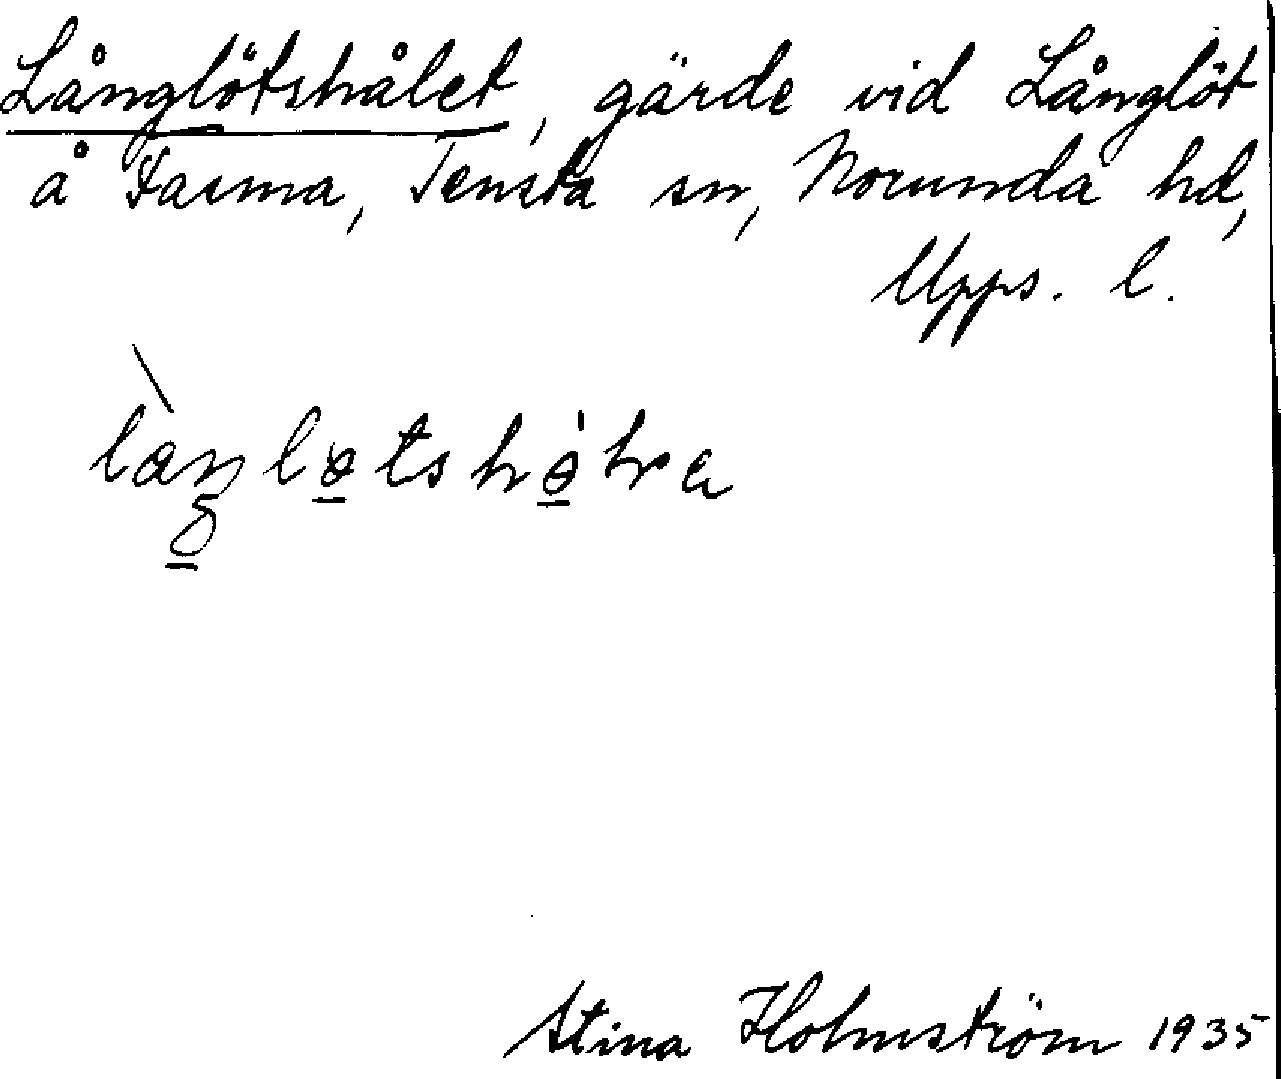 Långlötshålet, gärde vid Långlöt
å Farma, Tensta sn, Norunda hd,
Upps. l.
Stina Holmström 1935